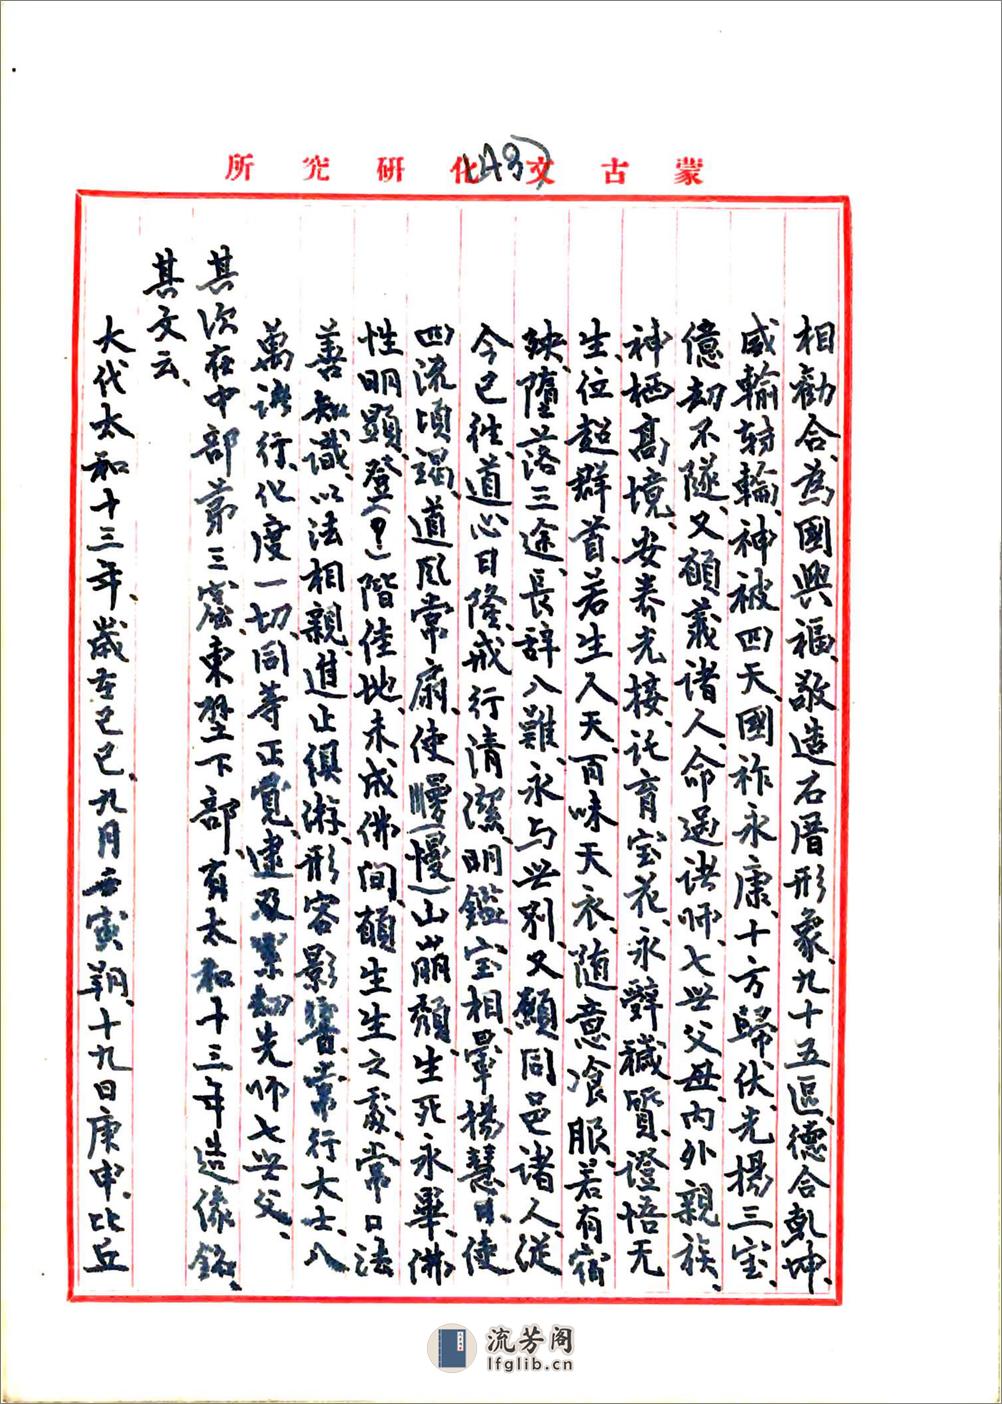 蒙古文化研究所
(43)
相勸合為國興福、敬造石厝形象、九十五區、德合乾坤、
威輸轉輪、神被四天、國祚永康、十方歸伏、光揚三宝、
億劫不隧、又願義諸人、命過諸师、七世父母、內外親族、
神栖高境、安养光接、託育宝花、永辭穢質、證悟无
生、位超群首、若生人天、百味天衣、随意飡服、若有宿
殃、墮落三途、長辞八難、永与世别、又願同邑諸人、從
今已往、道心日隆、戒行清潔、明鑑宝相、暈揚慧日、使
四流頃竭、道風常扇、使慢(慢)山崩頹、生死永畢、佛
性明顯、登(?)階佳地、未成佛間、願生生之處、常口法
善知識、以法相親、進止俱游、形容影響、常行大士、八
萬諸行、化度一切、同等正覺、逮及累劫先师七世父、
其次在中部第三窟東壁下部、有太和十三年造像銘、
其文云、
大代太和十三年、歲在己巳、九月壬寅朔、十九日庚申、比丘
流芳阁
lfglib.cn